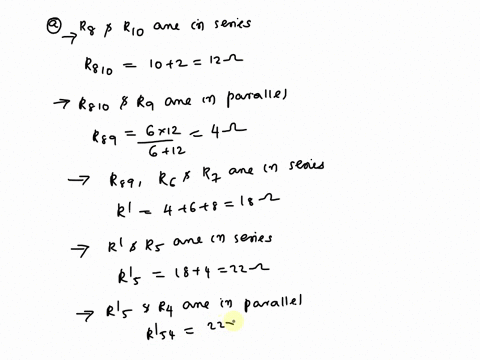 ⓐ
→ R8 & R10 ane in series
R810 = 10+2 = 12Ω
→ R810 & R9 ane in parallel
R89 = 6×12 / 6+12 = 4Ω
→ R89, R6 & R7 ane in series
R' = 4+6+8 = 18Ω
→ R' & R5 ane in series
R'5 = 18+4 = 22Ω
→ R'5 & R4 ane in parallel
R'54 = 22